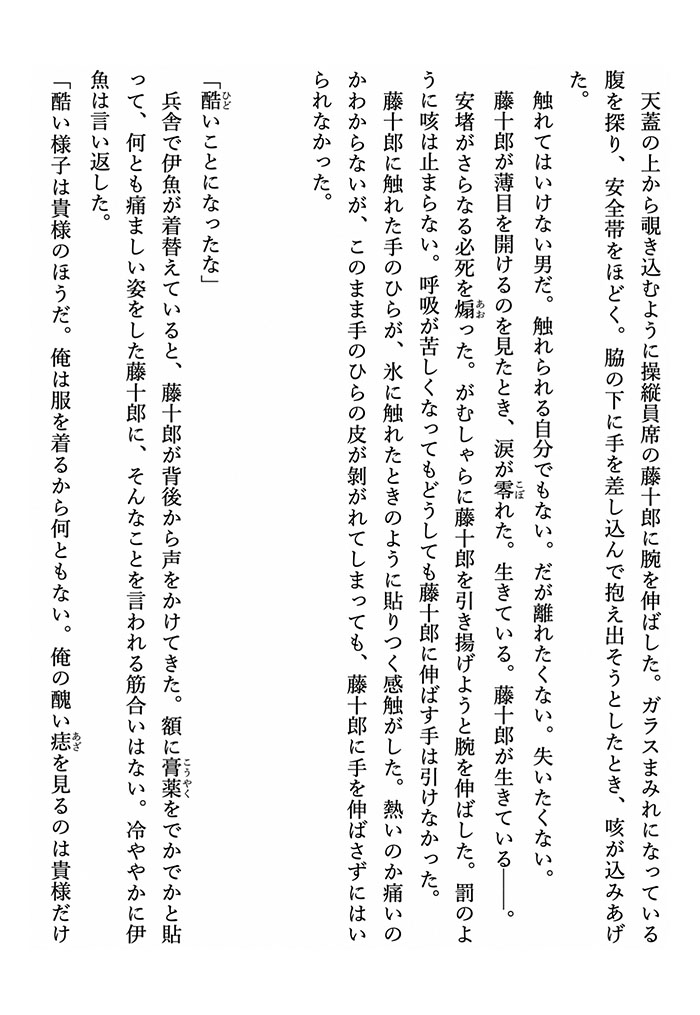 天蓋の上から覗き込むように操縦員席の藤十郎に腕を伸ばした。ガラスまみれになっている
腹を探り、安全帯をほどく。脇の下に手を差し込んで抱え出そうとしたとき、咳が込みあげ
た。
　触れてはいけない男だ。触れられる自分でもない。だが離れたくない。失いたくない。
　藤十郎が薄目を開けるのを見たとき、涙が零れた。生きている。藤十郎が生きている――。
　安堵がさらなる必死を煽った。がむしゃらに藤十郎を引き揚げようと腕を伸ばした。罰のよ
うに咳は止まらない。呼吸が苦しくなってもどうしても藤十郎に伸ばす手は引けなかった。
　藤十郎に触れた手のひらが、氷に触れたときのように貼りつく感触がした。熱いのか痛いの
かわからないが、このまま手のひらの皮が剝がれてしまっても、藤十郎に手を伸ばさずにはい
られなかった。
「酷いことになったな」
　兵舎で伊魚が着替えていると、藤十郎が背後から声をかけてきた。額に膏薬をでかでかと貼
って、何とも痛ましい姿をした藤十郎に、そんなことを言われる筋合いはない。冷ややかに伊
魚は言い返した。
「酷い様子は貴様のほうだ。俺は服を着るから何ともない。俺の醜い痣を見るのは貴様だけ